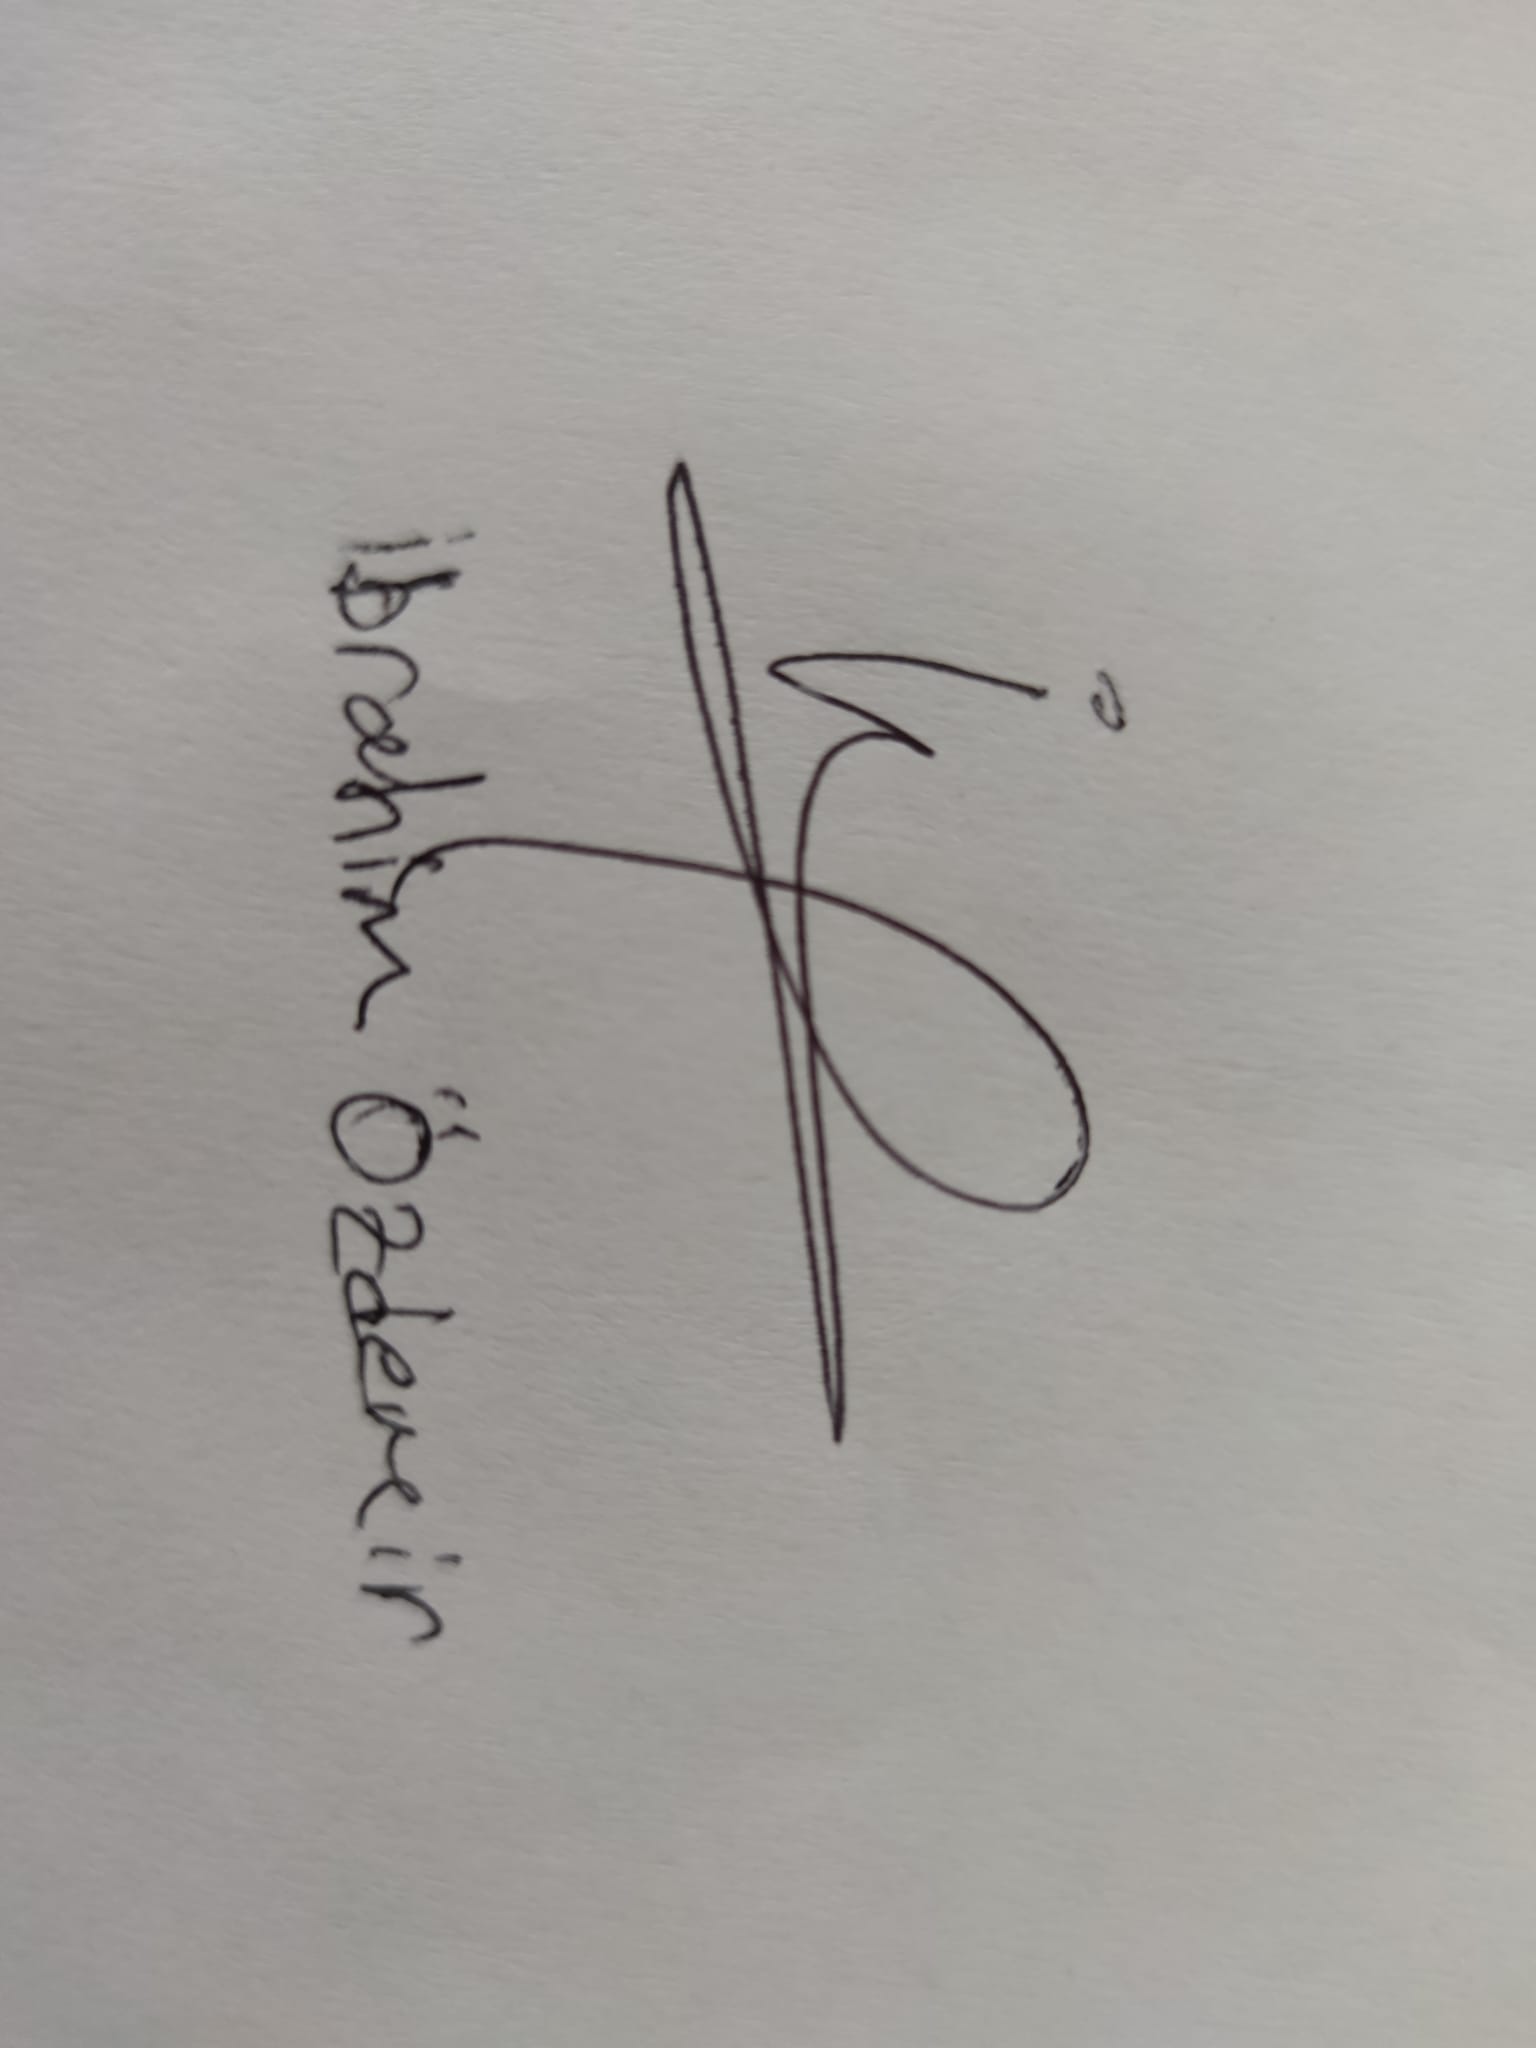 ibrahim Özdemir